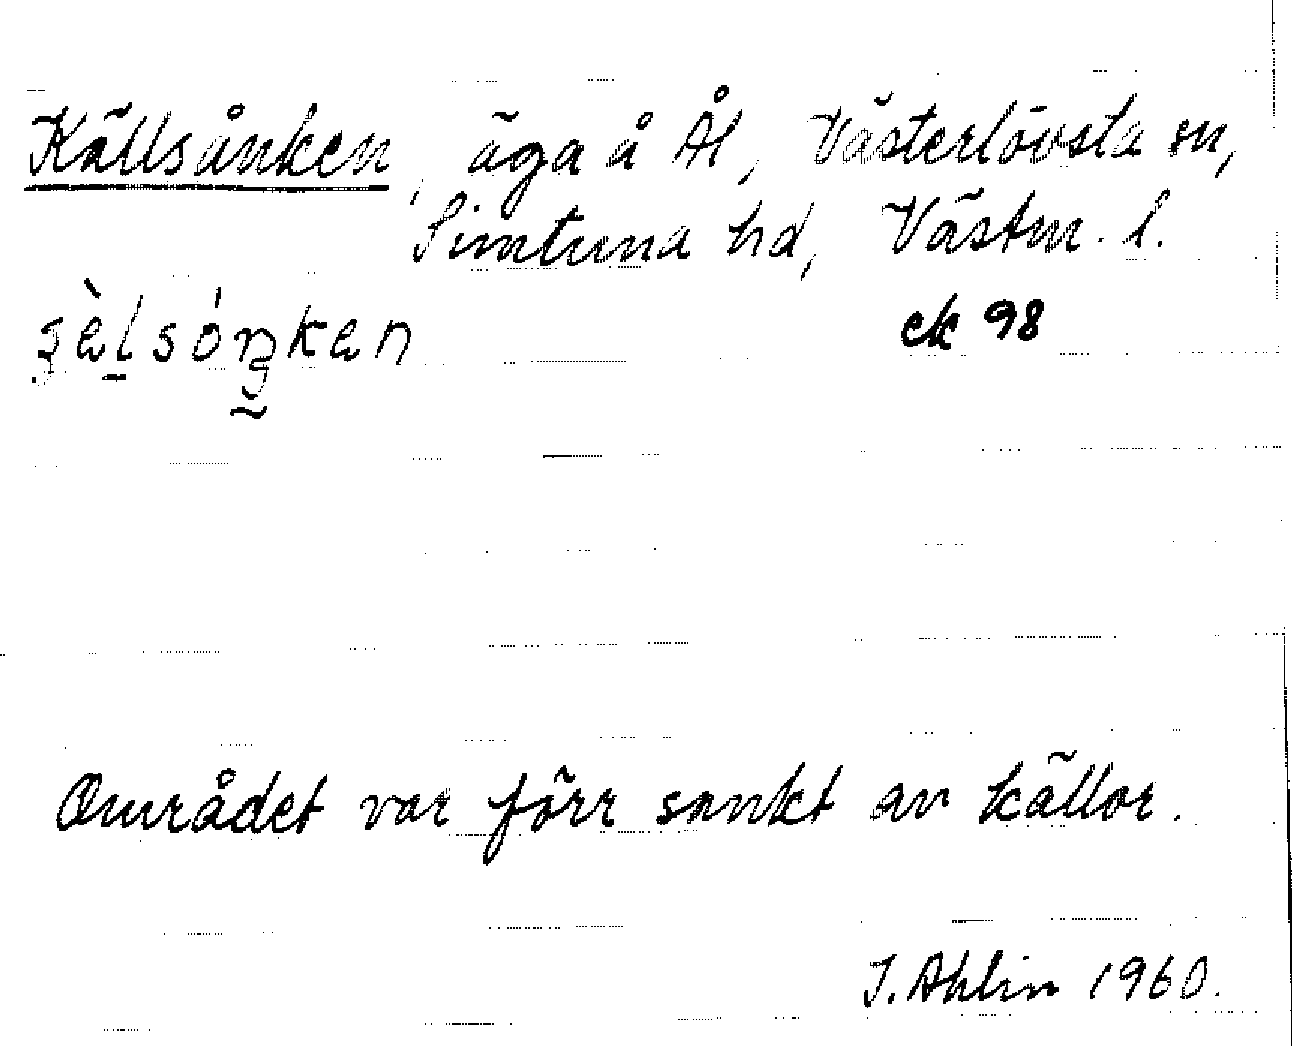 Källsånken, äga å Ål, Västerlövsta sn,
Simtuna hd, Västm. l.
ck 98
Området var förr sankt av källor.
J. Ahlin 1960.